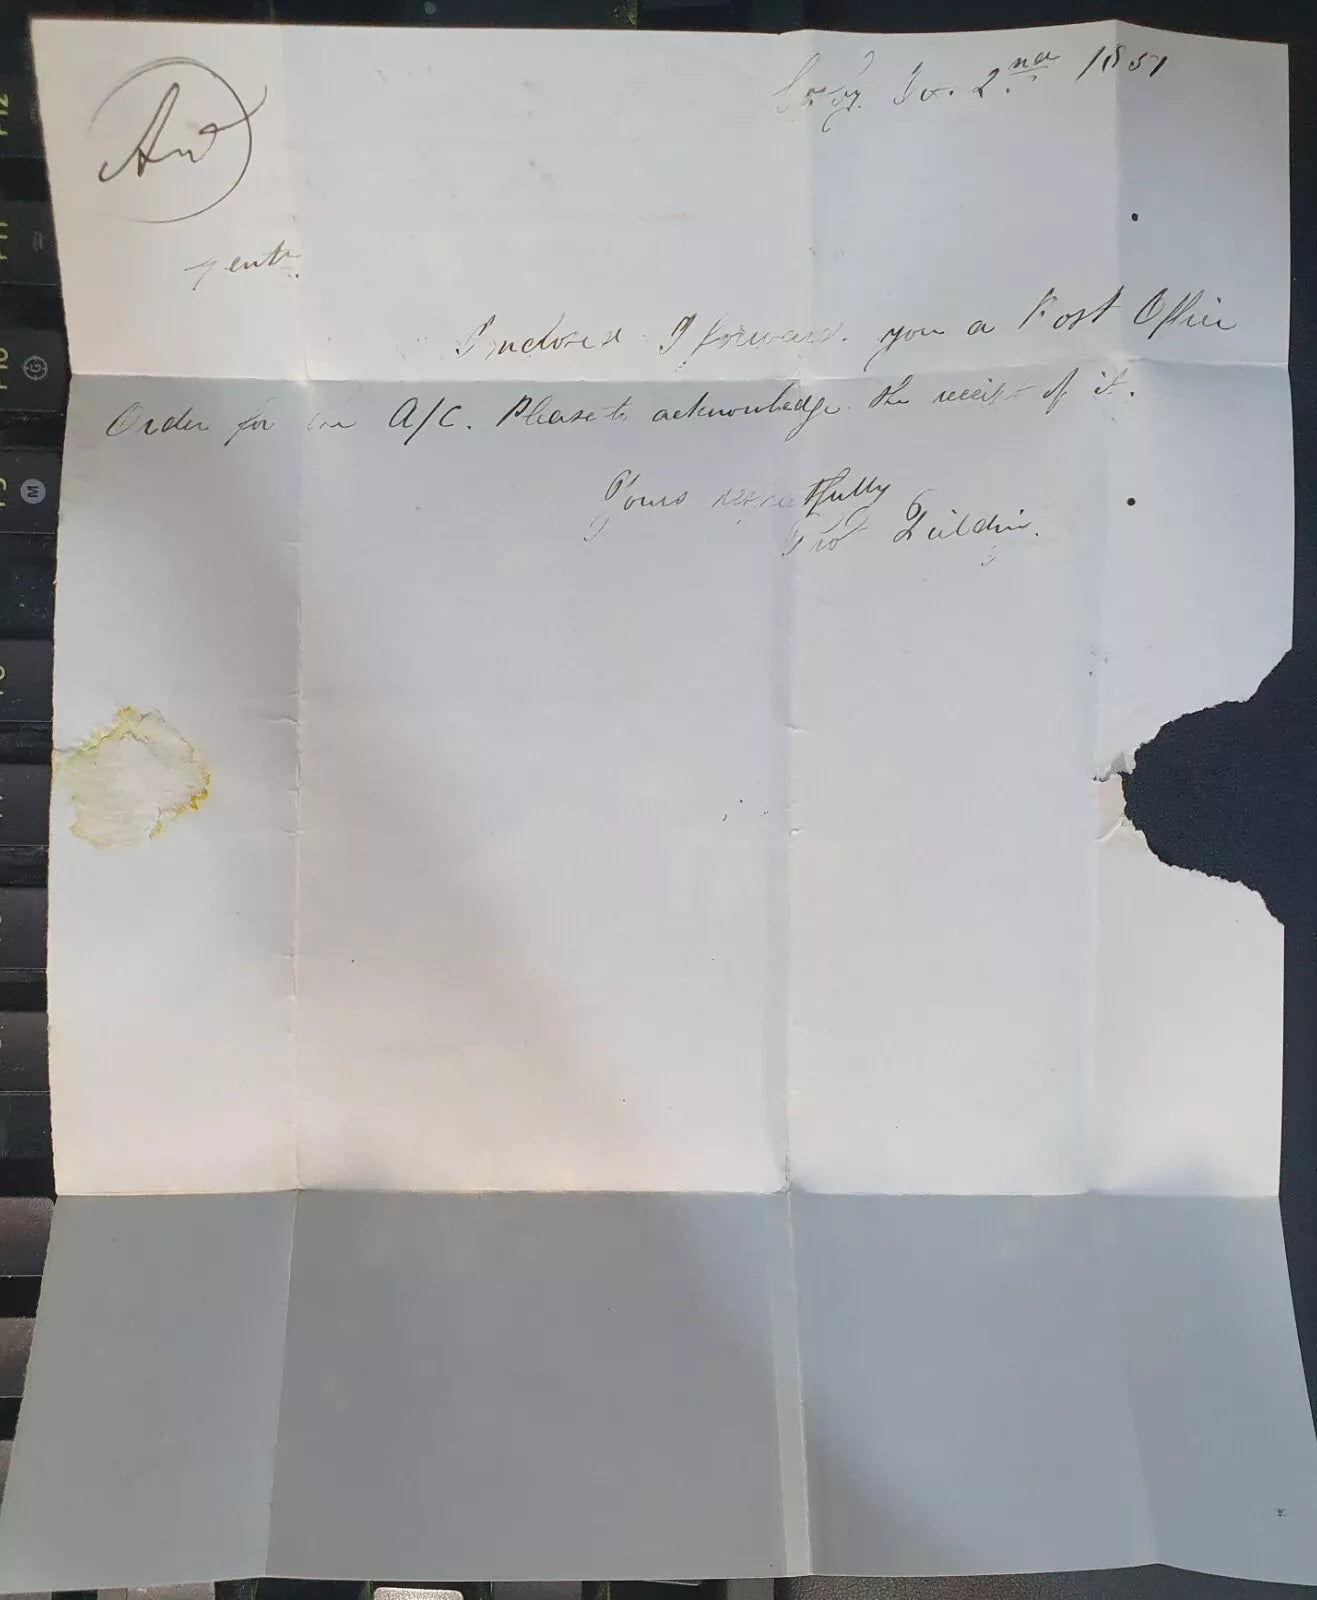 An
2nd 1851
Gents
Enclosed I forward you a Post Office
Order for the A/C. Please to acknowledge the receipt of it.
Yours respectfully
F12
F11
F10
G
M